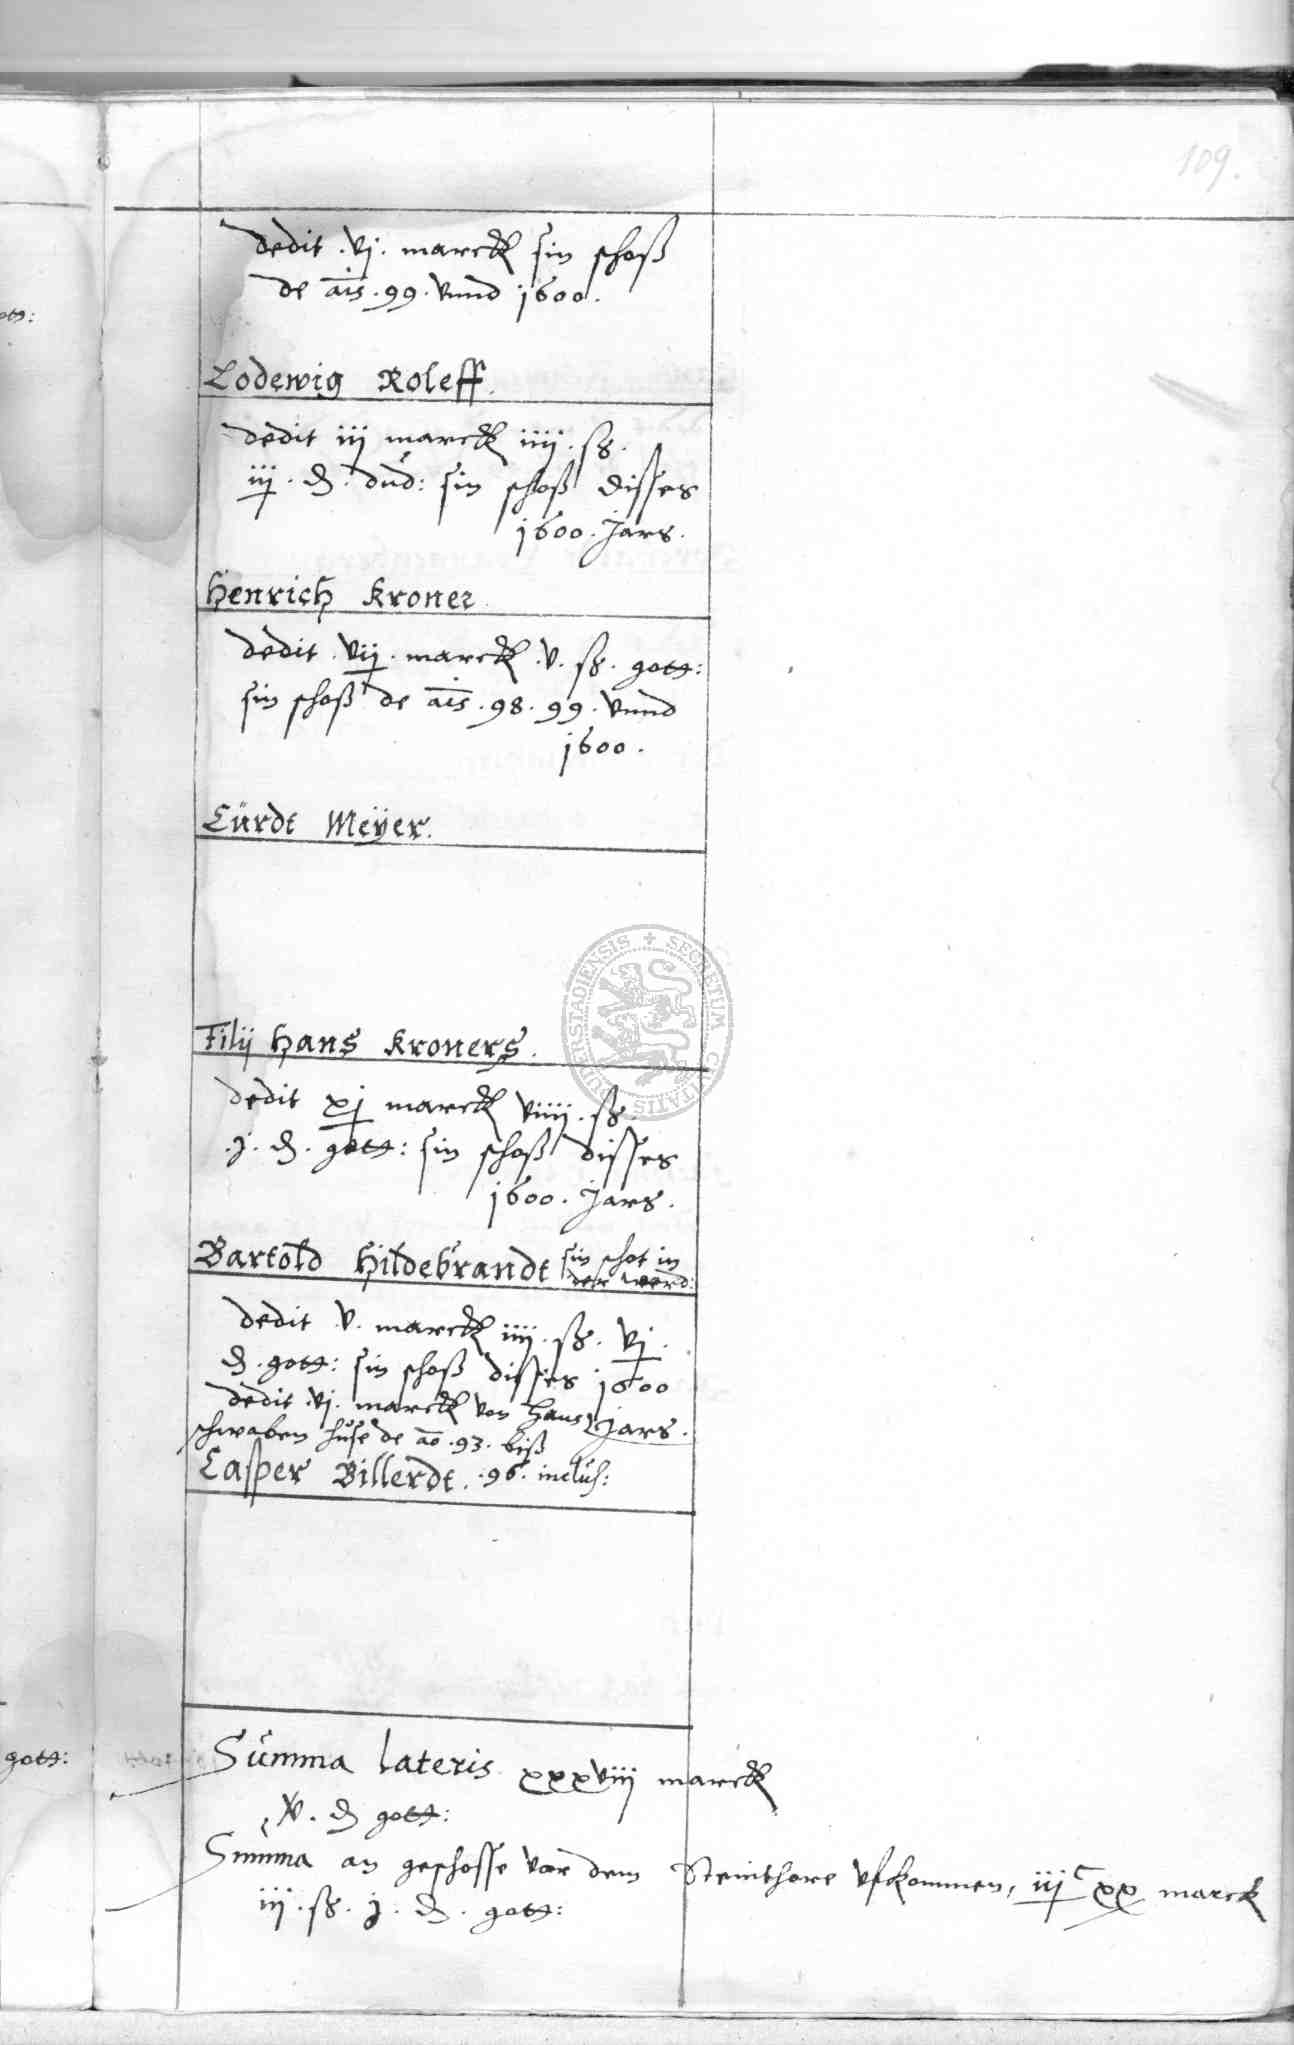 109.
dedit .vj. marck sin schoß
de ais .99. vnnd 1600.
Lodewig Roleff.
dedit iij marck iiij. ß.
iij. d. dud: sin schoß disses
1600. Jars.
Henrich Kroner
dedit .vij. marck .v. ß. gott:
sin schoß de ais .98. 99. vnnd
1600.
Cürdt Meÿer.
Filij Hans Kroners.
dedit xj marck viiij. ß.
.j. d. gott: sin schoß disses
1600. Jars.
Bartold Hildebrandt sin schot in
der werd:
dedit .v. marck iiij. ß. vj.
d. gott: sin schoß disses 1600
Jars.
dedit .vj. marck von Hans
schwaben huse de ao .93. biß
.96. inclus:
Casper Billerdt.
Summa lateris xxxviij marck
v. d gott:
Summa an geschosse vor dem Steinthore vfkommen, iij c xx marck
iij. ß. j. d. gott:
gott:
SECRETUM CIVITATIS DUDERSTADIENSIS